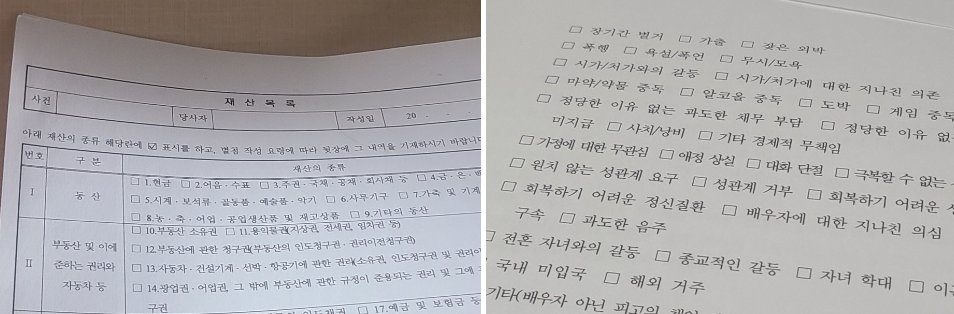 재 산 목 록
사건
당사자
작성일
20 . . .
아래 재산의 종류 해당란에 ☑ 표시를 하고, 별첨 작성 요령에 따라 뒷장에 그 내역을 기재하시기 바랍니다
번호 구 분 재산의 종류
I 동 산
□ 1.현금 □ 2.어음·수표 □ 3.주권·국채·공채·회사채 등 □ 4.금·은·백
□ 5.시계·보석류·골동품·예술품·악기 □ 6.사무기구 □ 7.가축 및 기계
□ 8.농·축·어업·공업생산품 및 재고상품 □ 9.기타의 동산
II 부동산 및 이에 준하는 권리와 자동차 등
□ 10.부동산 소유권 □ 11.용익물권(지상권, 전세권, 임차권 등)
□ 12.부동산에 관한 청구권(부동산의 인도청구권·권리이전청구권)
□ 13.자동차·건설기계·선박·항공기에 관한 권리(소유권, 인도청구권 및 권리이
□ 14.광업권·어업권, 그 밖에 부동산에 관한 규정이 준용되는 권리 및 그에
구권
□ 17.예금 및 보험금 등
□ 장기간 별거 □ 가출 □ 잦은 외박
□ 폭행 □ 욕설/폭언 □ 무시/모욕
□ 시가/처가와의 갈등 □ 시가/처가에 대한 지나친 의존
□ 마약/약물 중독 □ 알코올 중독 □ 도박 □ 게임 중독
□ 정당한 이유 없는 과도한 채무 부담 □ 정당한 이유 없
미지급 □ 사치/낭비 □ 기타 경제적 무책임
□ 가정에 대한 무관심 □ 애정 상실 □ 대화 단절 □ 극복할 수 없는
□ 원치 않는 성관계 요구 □ 성관계 거부 □ 회복하기 어려운
□ 회복하기 어려운 정신질환 □ 배우자에 대한 지나친 의심
구속 □ 과도한 음주
□ 전혼 자녀와의 갈등 □ 종교적인 갈등 □ 자녀 학대 □
국내 미입국 □ 해외 거주
기타(배우자 아닌 피고의